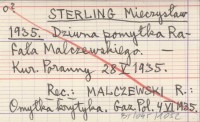 STERLING Mieczysław
1935. Dziwna pomyłka Ra-
fała Malczewskiego. —
Kur. Poranny 28 V 1935.
Rec.: MALCZEWSKI R.:
Omyłka krytyka. Gaz. Pol. 4 VI 1935.